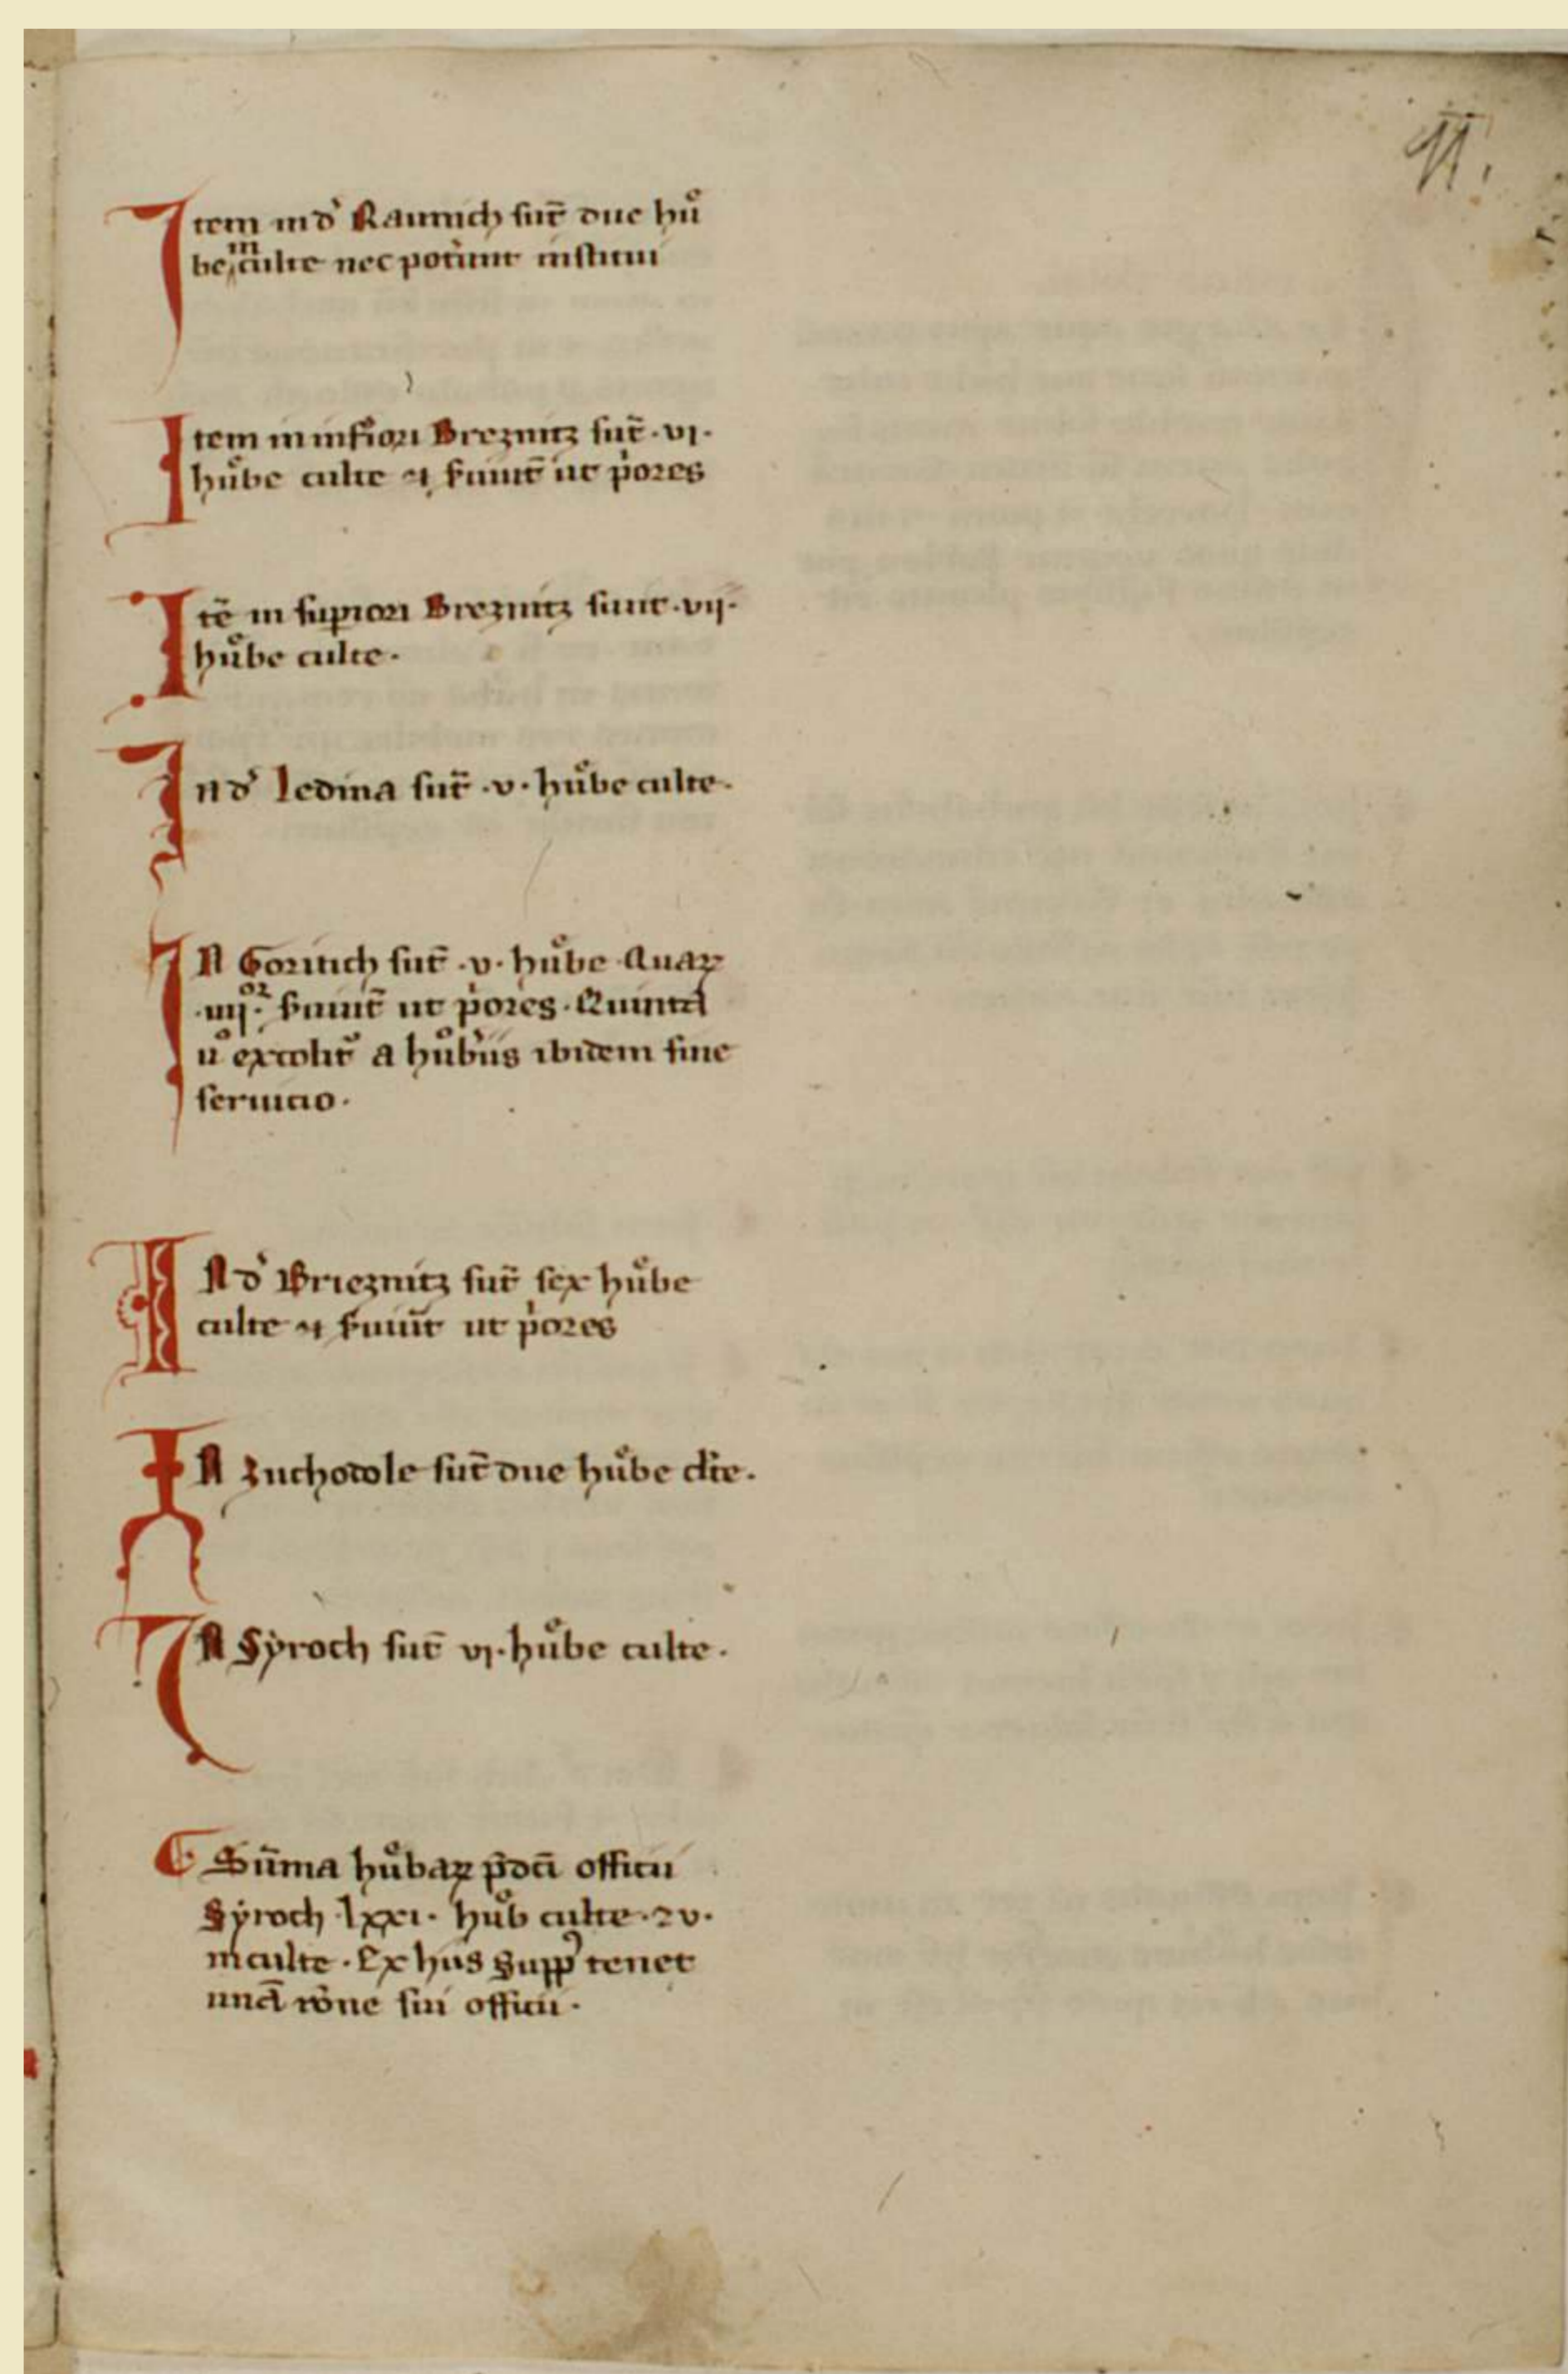 11.
Item in d̕ Raunich sūt due hůͤ
be inculte nec potůnt institui
Item in inf̕iori Brezniz sūt ·vi·
hůbe culte ⁊ s̕uiūt ut p̕ores
Itē in sup̕iori Brezniz sunt ·vij·
hůbe culte·
In d̕ Iedina sūt ·v· hůbe culte·
IN Goritich sūt ·v· hůbe Quaꝝ
·iiij·or s̕uiūt ut p̕ores · Quintā
ů excolūt a hůbariis ibidem sine
seruicio·
IN d̕ Briezniz sūt sex hůbe
culte ⁊ s̕uiūt ut p̕ores
IN Zuchodole sūt due hůbe cl̕te·
IN Sẏroch sūt vi· hůbe culte·
Sūma hůbaꝝ p̄dc̄i officii
Sẏroch ·lxxi· hůb culte · ⁊ v·
inculte · Ex hiis Supp̕ tenet
unā rōne sui officii·